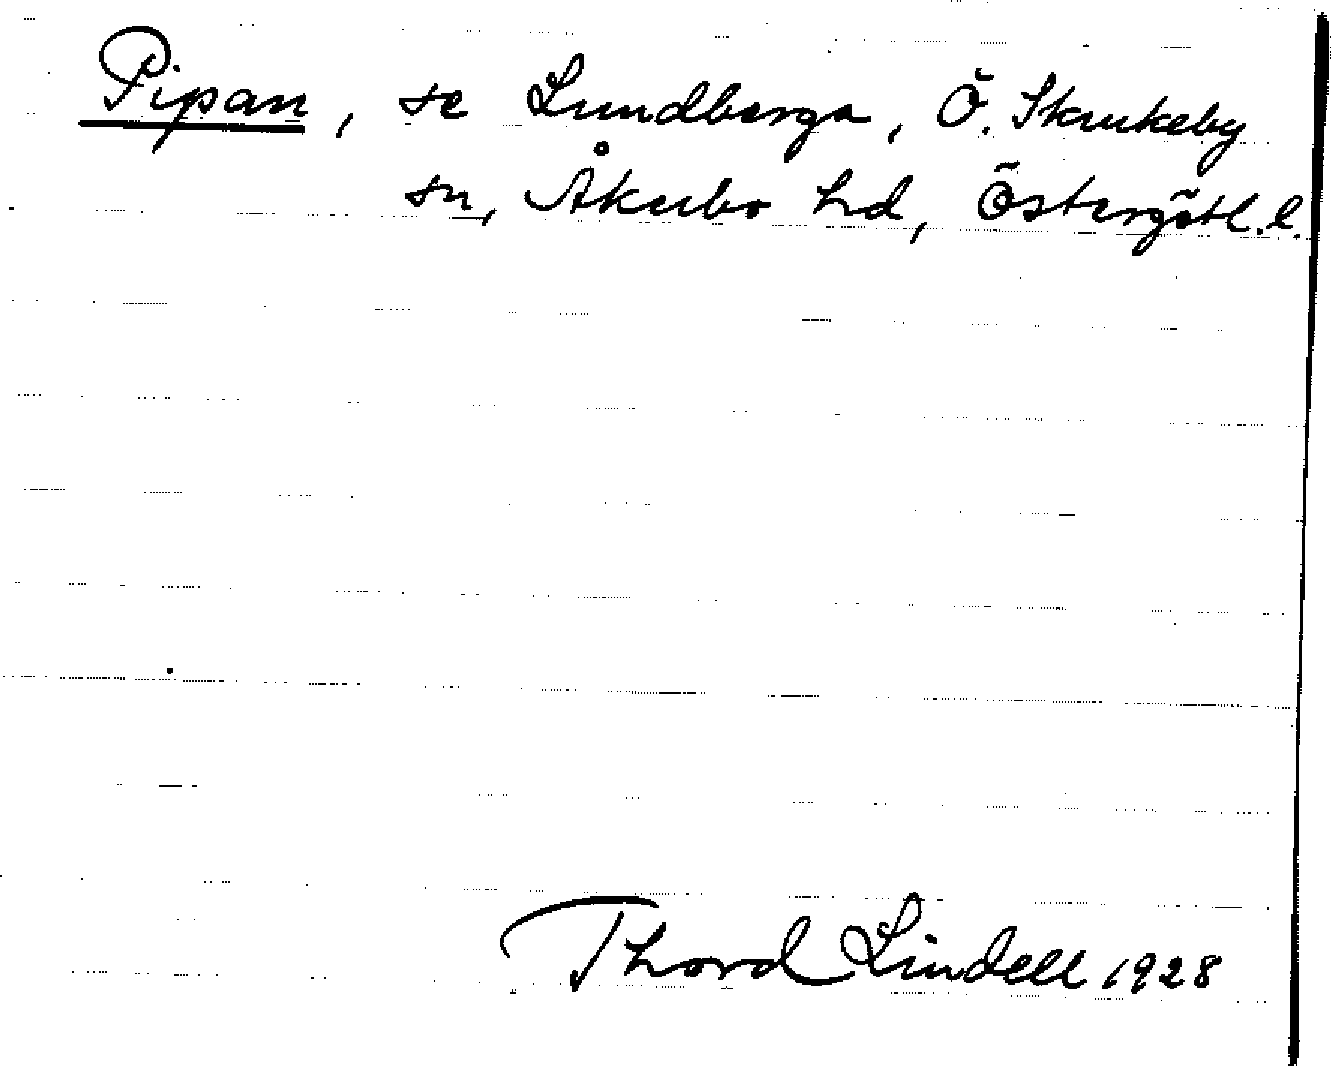 Pipan, se Lundberga, Ö. Skrukeby
sn, Åkerbo hd, Östergötl. l.
Thord Lindell 1928